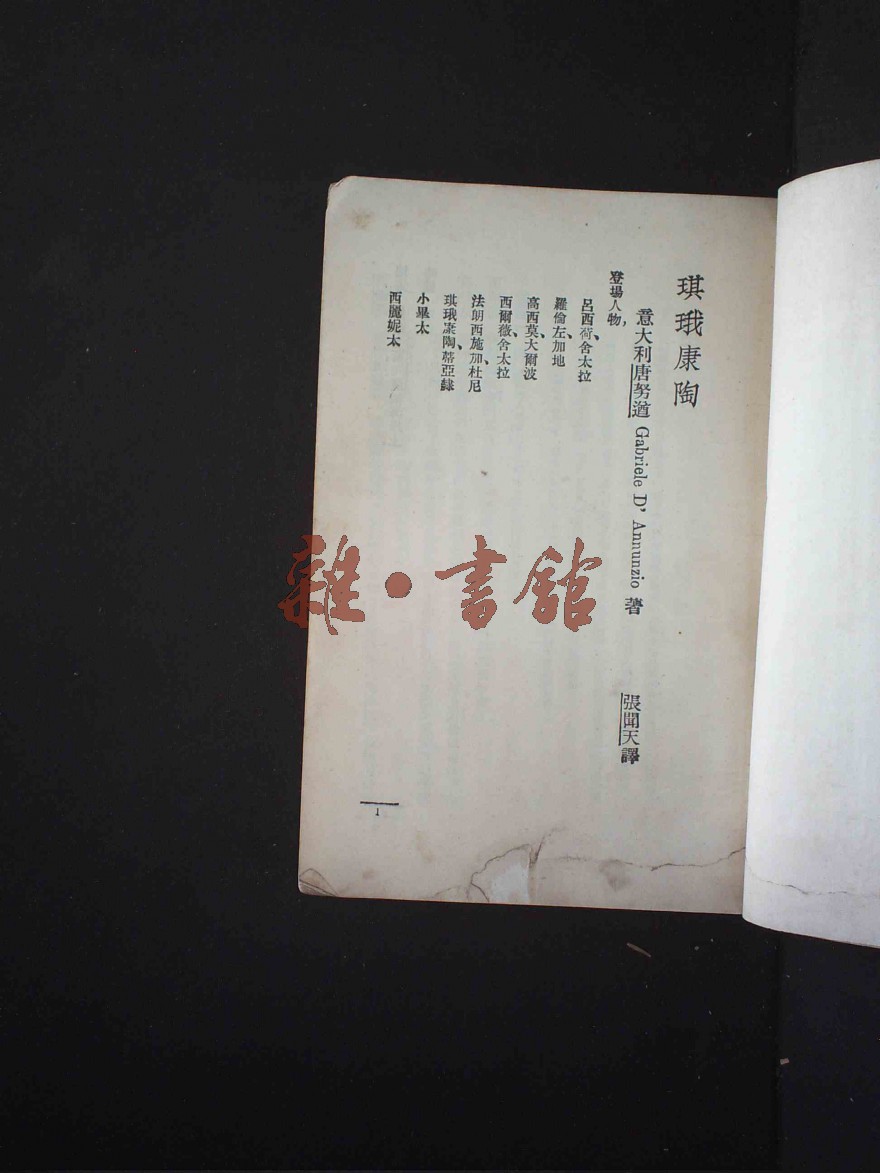 琪珴康陶
意大利唐努遒 Gabriele D' Annunzio 著
張聞天譯
登場人物，
呂西荷、舍太拉
羅倫左、加地
高西莫、大爾波
西爾薇、舍太拉
法朗西施加、杜尼
琪珴康陶、蒂亞
小畢太
西麗妮太
1
雜·書館